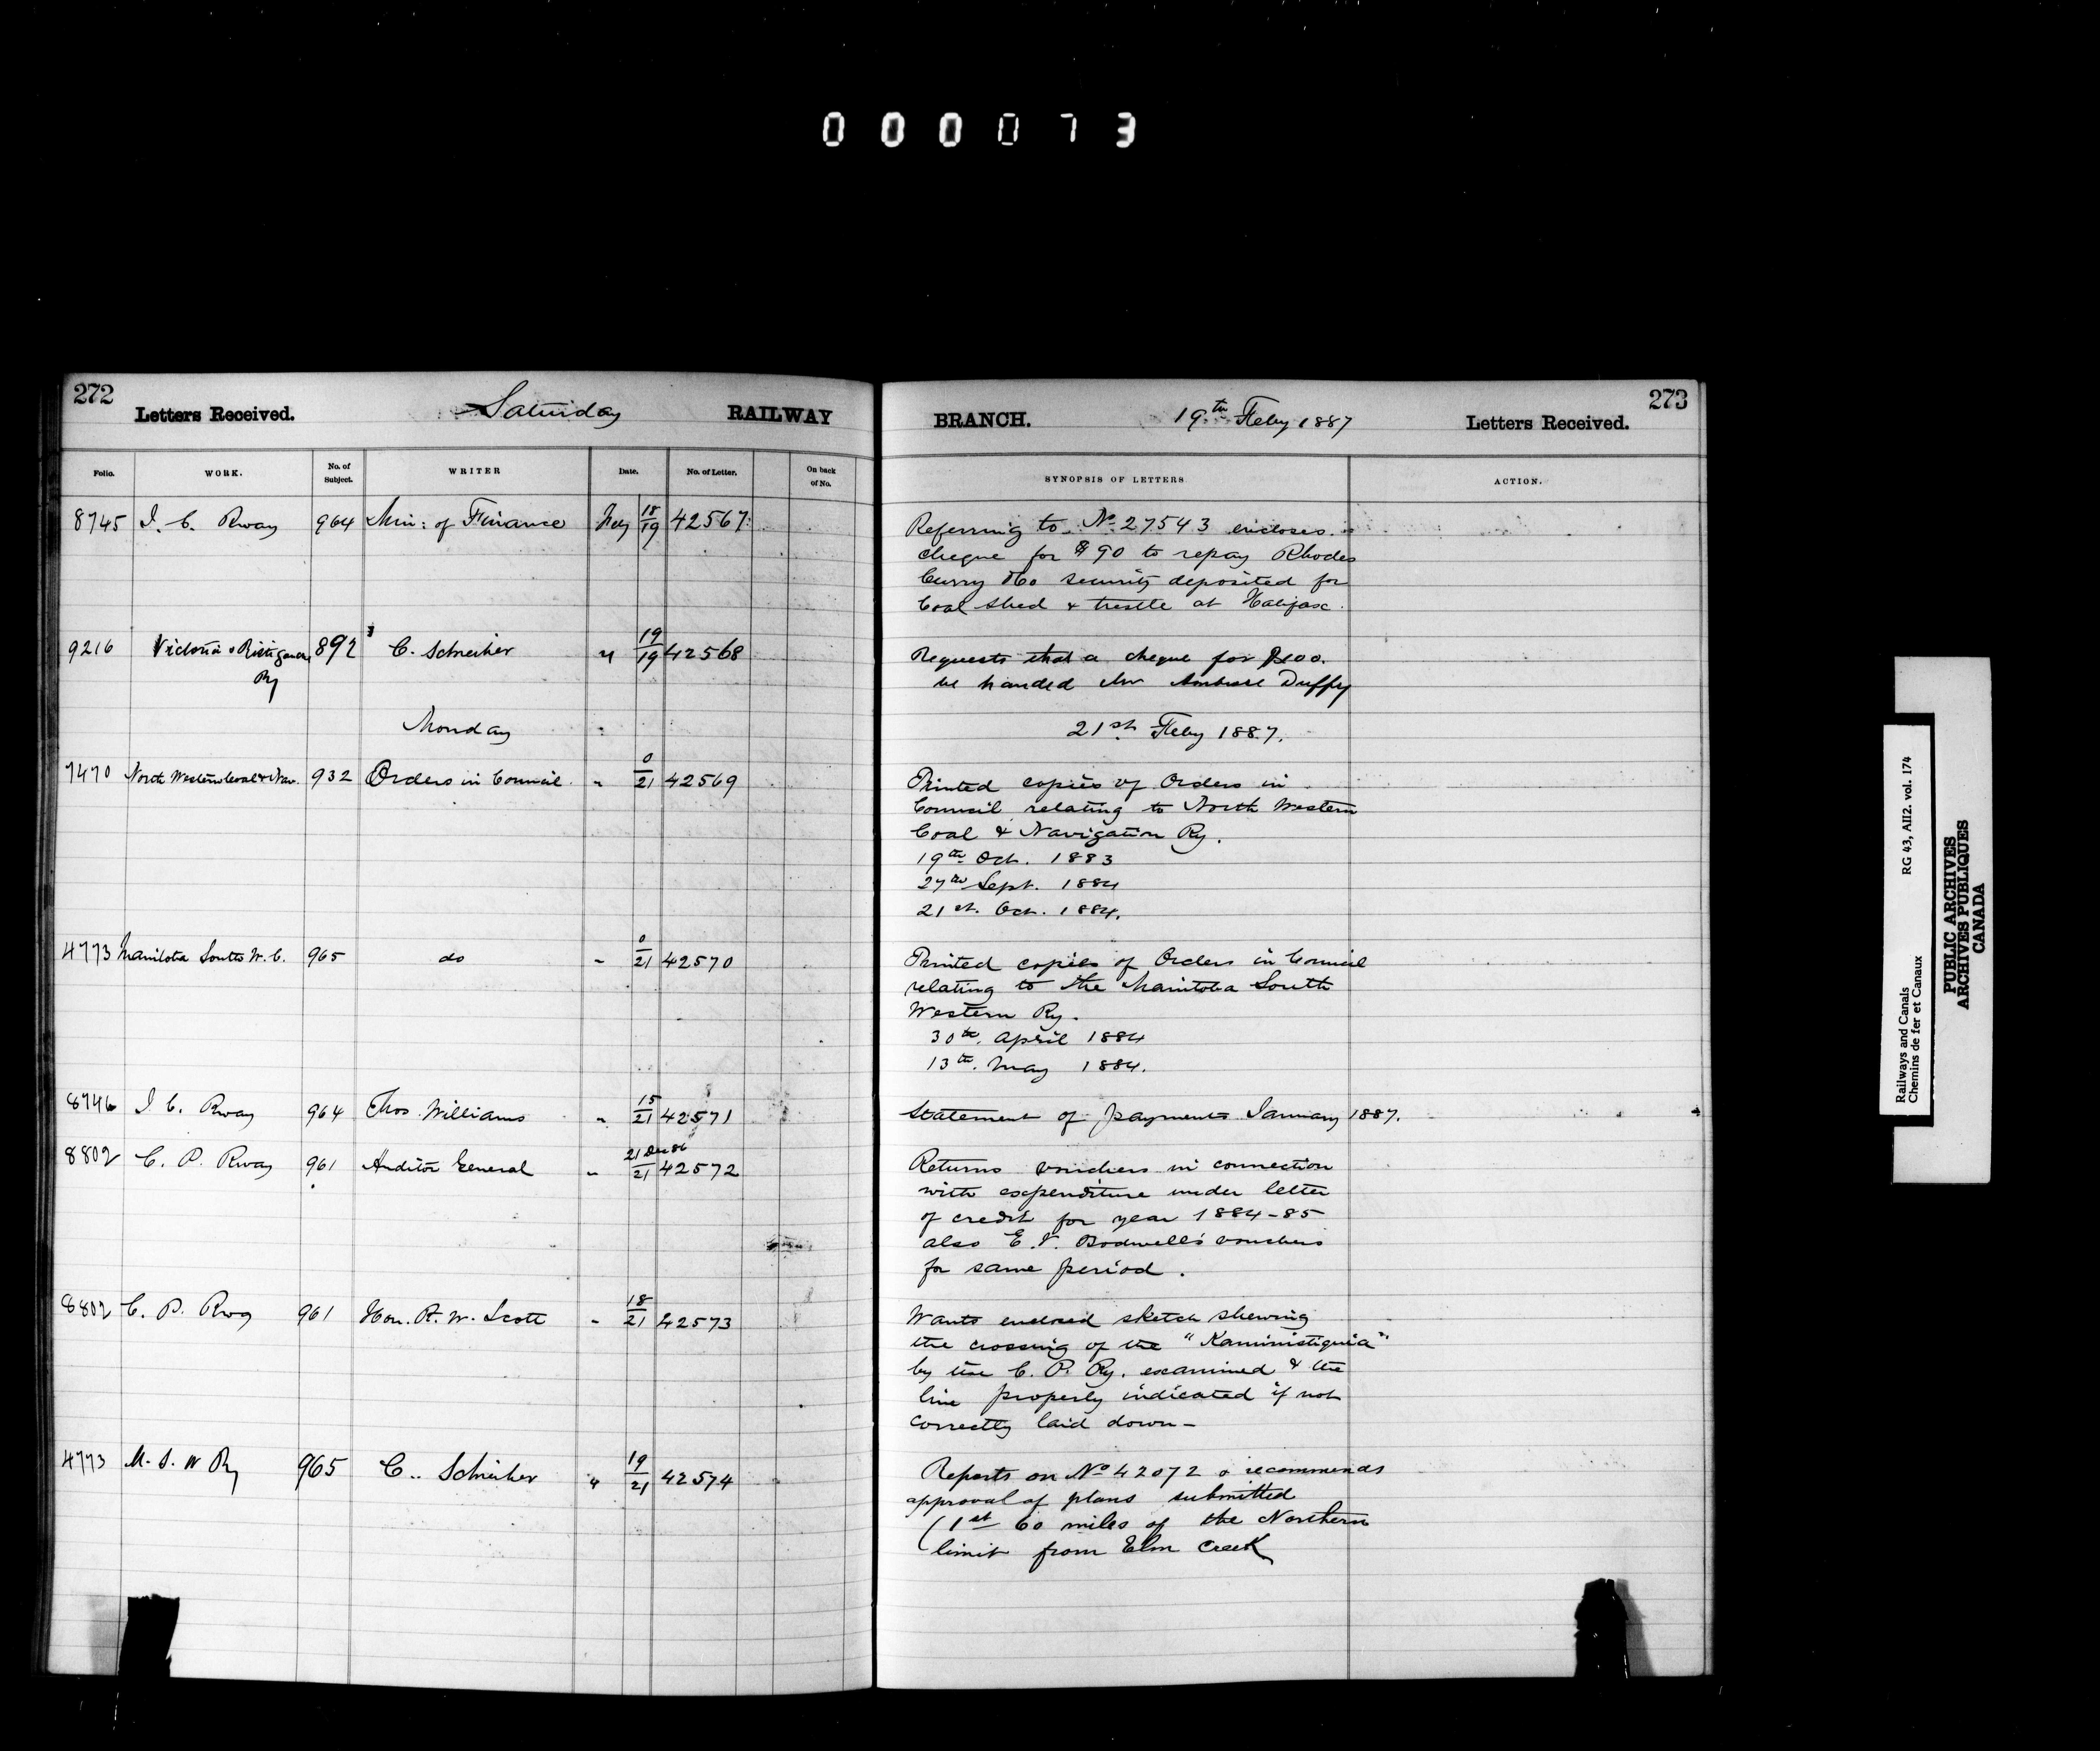 000073
272
Letters Received.
Saturday
RAILWAY
Folio.
WORK.
No. of Subject.
WRITER
Date.
No. of Letter.
On back of No.
8745 I. C. Rway 964 Min: of Finance Feby 18/19 42567
9216 Victoria & Ristigouche Ry 892 C. Schreiber " 19/19 42568
Monday
7470 North Western Coal & Nav. 932 Orders in Council " 0/21 42569
4773 Manitoba South W. C. 965 do " 0/21 42570
8746 I C. Rway 964 Thos. Williams " 15/21 42571
8802 C. P. Rway 961 Auditor General " 21 Dec 86/21 42572
8802 C. P. Rwy 961 Hon. R. W. Scott " 18/21 42573
4773 M. S. W Ry 965 C. Schreiber " 19/21 42574
273
BRANCH.
19th Feby 1887
Letters Received.
SYNOPSIS OF LETTERS
ACTION.
Referring to No 27543 encloses
cheque for $90 to repay Rhodes
Curry & Co security deposited for
Coal shed & trestle at Halifax.
Requests that a cheque for $100.
be handed Mr Ambrose Duffy
21st Feby 1887.
Printed copies of Orders in
Council relating to North Western
Coal & Navigation Ry.
19th Oct. 1883
27th Sept. 1884
21st. Oct. 1884.
Printed copies of Orders in Council
relating to the Manitoba South
Western Ry.
30th. April 1884
13th. May 1884.
Statement of payments January 1887.
Returns vouchers in connection
with expenditure under letter
of credit for year 1884-85
also E. V. Bodwell's vouchers
for same period.
Wants enclosed sketch shewing
the crossing of the "Kaministiquia"
by the C. P. Ry. examined & the
line properly indicated if not
correctly laid down -
Reports on No 42072 & recommends
approval of plans submitted
(1st 60 miles of the Northern
limit from Elm Creek
Railways and Canals
Chemins de fer et Canaux
RG 43, AII2. vol. 174
PUBLIC ARCHIVES
ARCHIVES PUBLIQUES
CANADA